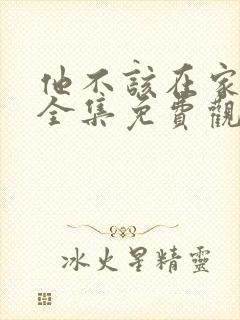 他不該在家
全集免費觀
冰火星精靈